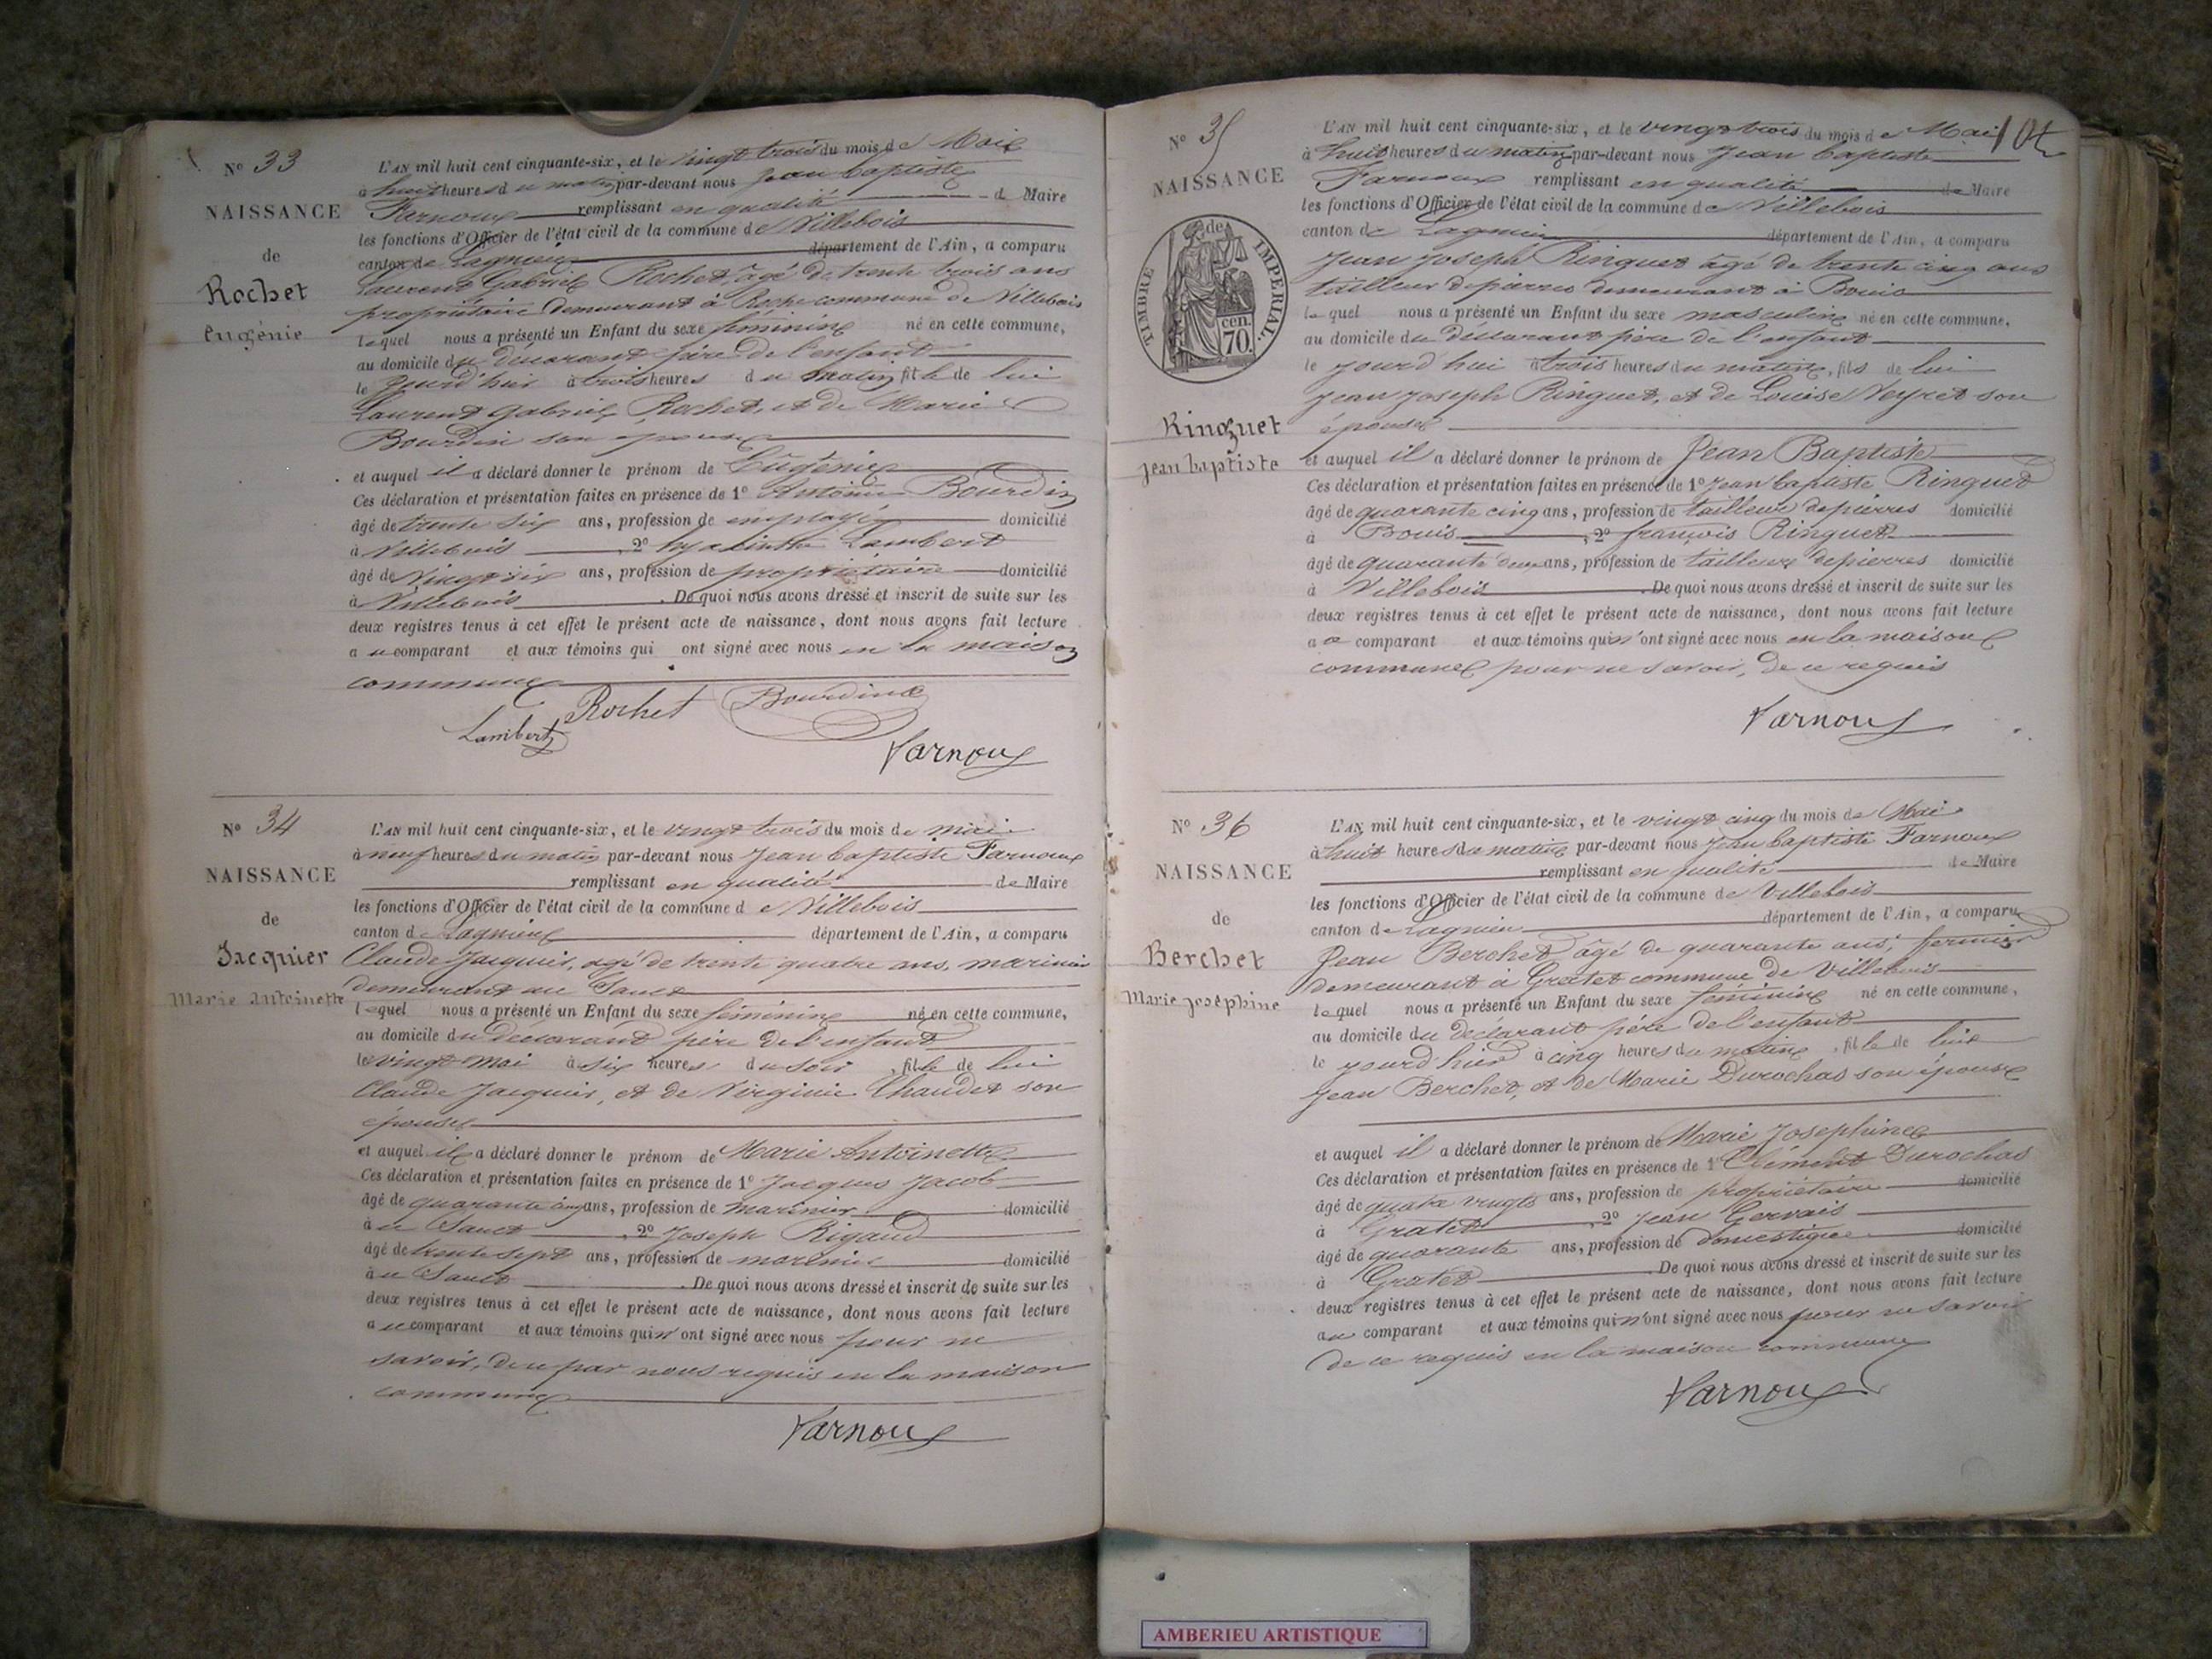 N° 33
NAISSANCE
de
Rochet
Eugénie
L'AN mil huit cent cinquante-six, et le vingt trois du mois de Mai
à huit heures du matin par-devant nous Jean baptiste
Farnoux remplissant en qualité de Maire
les fonctions d'Officier de l'état civil de la commune de Villebois
canton de Lagnieu département de l'Ain, a comparu
Laurent Gabriel Rochet, âgé de trente trois ans
propriétaire demeurant à Roche commune de Villebois
lequel nous a présenté un Enfant du sexe féminin né en cette commune,
au domicile du déclarant père de l'enfant
le jourd'hui à trois heures du matin fille de lui
Laurent Gabriel Rochet, et de Marie
Bourdin son épouse
et auquel il a déclaré donner le prénom de Eugénie
Ces déclaration et présentation faites en présence de 1° Antoine Bourdin
âgé de trente six ans, profession de employé domicilié
à Villebois , 2° hyacinthe Lambert
âgé de Vingt six ans, profession de propriétaire domicilié
à Villebois . De quoi nous avons dressé et inscrit de suite sur les
deux registres tenus à cet effet le présent acte de naissance, dont nous avons fait lecture
au comparant et aux témoins qui ont signé avec nous en la maison
commune
Rochet Bourdin
Lambert
Farnoux
N° 34
NAISSANCE
de
Jacquier
Marie Antoinette
L'AN mil huit cent cinquante-six, et le vingt trois du mois de mai
à neuf heures du matin par-devant nous Jean baptiste Farnoux
remplissant en qualité de Maire
les fonctions d'Officier de l'état civil de la commune de Villebois
canton de Lagnieu département de l'Ain, a comparu
Claude Jacquier, agé de trente quatre ans, marinier
demeurant au Sault
lequel nous a présenté un Enfant du sexe féminin né en cette commune,
au domicile du déclarant père de l'enfant
le vingt mai à six heures du soir , fille de lui
Claude Jacquier, et de Virginie Chaudet son
épouse
et auquel il a déclaré donner le prénom de Marie Antoinette
Ces déclaration et présentation faites en présence de 1° Jacques Jacob
âgé de quarante cinq ans, profession de marinier domicilié
à au Sault , 2° Joseph Rigaud
âgé de trente sept ans, profession de marinier domicilié
à au Sault . De quoi nous avons dressé et inscrit de suite sur les
deux registres tenus à cet effet le présent acte de naissance, dont nous avons fait lecture
au comparant et aux témoins qui n'ont signé avec nous pour ne
savoir, de ce par nous requis en la maison
commune
Farnoux
N° 35
NAISSANCE
TIMBRE IMPERIAL
de
cen.
70.
Ringuet
jean baptiste
L'AN mil huit cent cinquante-six, et le vingt trois du mois de Mai
à huit heures du matin par-devant nous Jean baptiste
Farnoux remplissant en qualité de Maire
les fonctions d'Officier de l'état civil de la commune de Villebois
canton de Lagnieu département de l'Ain, a comparu
Jean Joseph Ringuet âgé de trente cinq ans
tailleur de pierres demeurant à Bouis
lequel nous a présenté un Enfant du sexe masculin né en cette commune,
au domicile du déclarant père de l'enfant
le jourd'hui à trois heures du matin, fils de lui
Jean Joseph Ringuet, et de Louise Veyret son
épouse
et auquel il a déclaré donner le prénom de Jean Baptiste
Ces déclaration et présentation faites en présence de 1° Jean baptiste Ringuet
âgé de quarante cinq ans, profession de tailleur de pierres domicilié
à Bouis , 2° françois Ringuet
âgé de quarante deux ans, profession de tailleur de pierres domicilié
à Villebois . De quoi nous avons dressé et inscrit de suite sur les
deux registres tenus à cet effet le présent acte de naissance, dont nous avons fait lecture
au comparant et aux témoins qui n'ont signé avec nous en la maison
commune pour ne savoir, de ce requis
Farnoux
N° 36
NAISSANCE
de
Berchet
Marie josephine
L'AN mil huit cent cinquante-six, et le vingt cinq du mois de Mai
à huit heures du matin par-devant nous Jean baptiste Farnoux
remplissant en qualité de Maire
les fonctions d'Officier de l'état civil de la commune de Villebois
canton de Lagnieu département de l'Ain, a comparu
Jean Berchet âgé de quarante ans, fermier
demeurant à Gratet commune de Villebois
lequel nous a présenté un Enfant du sexe féminin né en cette commune,
au domicile du déclarant père de l'enfant
le jourd'hui à cinq heures du matin , fille de lui
Jean Berchet, et de Marie Durochas son épouse
et auquel il a déclaré donner le prénom de Marie Josephine
Ces déclaration et présentation faites en présence de 1° Clément Durochas
âgé de quatre vingts ans, profession de propriétaire domicilié
à Gratet , 2° Jean Gervais
âgé de quarante ans, profession de domestique domicilié
à Gratet . De quoi nous avons dressé et inscrit de suite sur les
deux registres tenus à cet effet le présent acte de naissance, dont nous avons fait lecture
au comparant et aux témoins qui n'ont signé avec nous pour ne savoir
de ce requis en la maison commune
Farnoux
AMBERIEU ARTISTIQUE